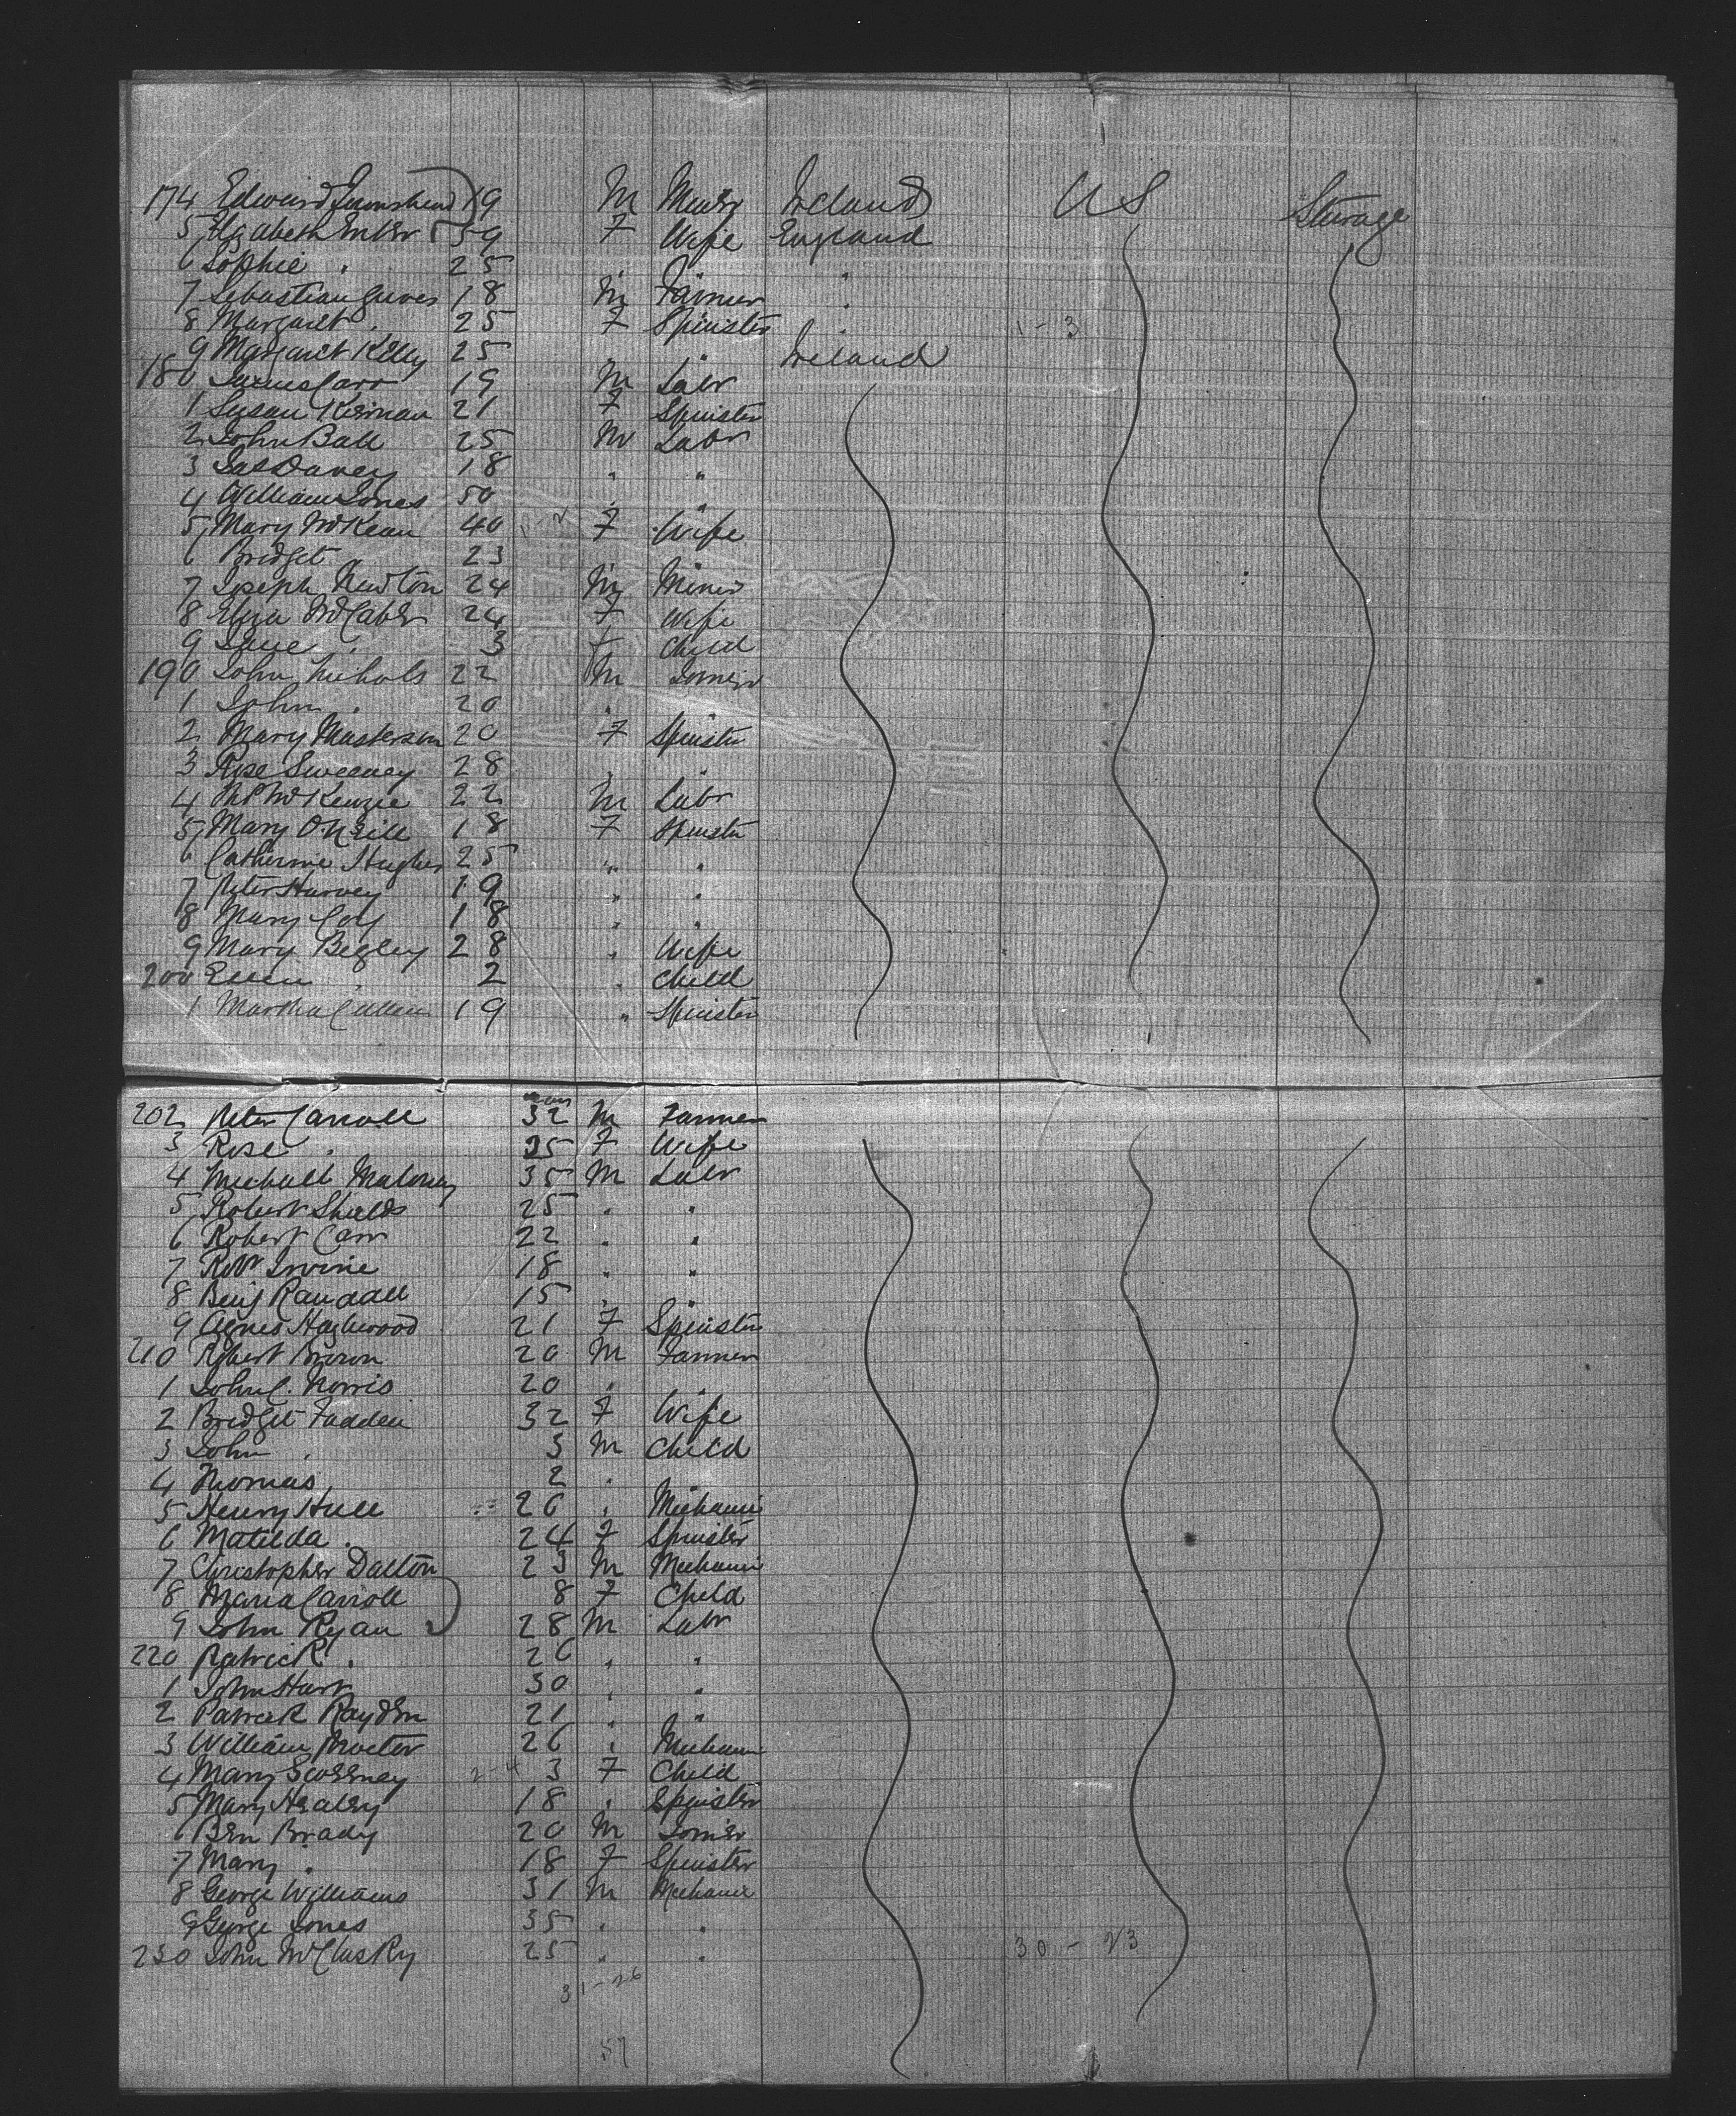 174 Edward Townshend 19 M Miner Ireland US Steerage
5 Elizabeth 59 F Wife England
6 Sophie " 25 " " "
7 Sebastian 18 M Farmer "
8 Margaret " 25 F Spinster " 1-3
9 Margaret Kelly 25 " " Ireland
180 James Carr 19 M Labr
1 Susan Kiernan 21 F Spinster
2 John Ball 25 M Labr
3 Jas Davey 18 " "
4 William Jones 50 " "
5 Mary McKean 40 1-2 F Wife
6 Bridget " 23
7 Joseph Newton 24 M Miner
8 Eliza McCaber 24 F Wife
9 Jane " 3 F Child
190 John Nichols 22 M Joiner
1 John " 20 "
2 Mary Masterson 20 F Spinster
3 Rose Sweeney 28 " "
4 McKenzie 22 M Labr
5 Mary O'Neill 18 F Spinster
6 Catherine Hughes 25 " "
7 Peter Harvey 19 " "
8 Mary Coy 18 " "
9 Mary Begley 28 " Wife
200 Ellen " 2 " Child
1 Martha Cullen 19 " Spinster
202 Peter Carroll 32 M Farmer
3 Rose " 35 F Wife
4 Michall Maloney 35 M Labr
5 Robert Shields 25 " "
6 Robert Carr 22 " "
7 Robt Irvine 18 " "
8 Benj Randall 15 " "
9 Agnes Haghwood 21 F Spinster
210 Robert Brown 20 M Farmer
1 John C. Norris 20 "
2 Bridget Fadden 32 F Wife
3 John " 3 M Child
4 Thomas 2 "
5 Henry Hull 26 " Mechanic
6 Matilda " 24 F Spinster
7 Christopher Dalton 23 M Mechanic
8 Maria Carroll 8 F Child
9 John Ryan 28 M Labr
220 Patrick " 26 " "
1 John Hart 30 " "
2 Patrick Rayden 21 " "
3 William Procter 26 " Mechanic
4 Mary Sweeney 2-4 3 F Child
5 Mary Healey 18 " Spinster
6 Ben Brady 20 M Joiner
7 Mary " 18 F Spinster
8 George Williams 31 M Mechanic
9 George Jones 35 " "
230 John McClusky 25 " " 30-23
31-26
57